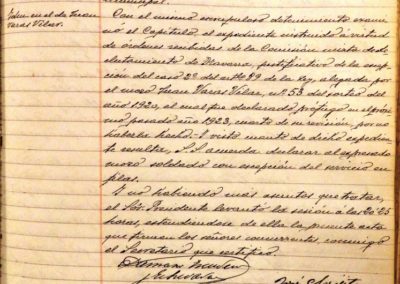 municipal.
Idem. en el de Juan
Varas Vilar.
Con el mismo escrupuloso detenimiento exami-
nó el Capítulo el expediente instruido á virtud
de órdenes recibidas de la Comisión mixta de Re-
clutamiento de Navarra, justificativo de la excep-
ción del caso 2º del artº 89 de la ley, alegada por
el mozo Juan Varas Vilar, nº 53 del sorteo del
año 1920, el cual fué declarado prófugo en el próxi-
mo pasado año 1923, cuarto de su revisión, por no
haberla hecho. I visto cuanto de dicho expedien-
te resulta, S. S. acuerda declarar al expresado
mozo soldado con excepción del servicio en
filas.
I no habiendo más asuntos que tratar,
el Sor. Presidente levantó la sesión á las 20'25
horas, extendiéndose de ella la presente acta
que firman los señores concurrentes, conmigo
el Secretario que certifico.